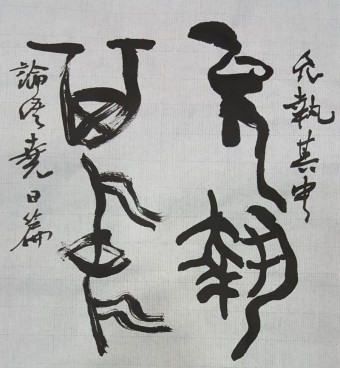 允執其中
允執
其中
論語堯曰篇